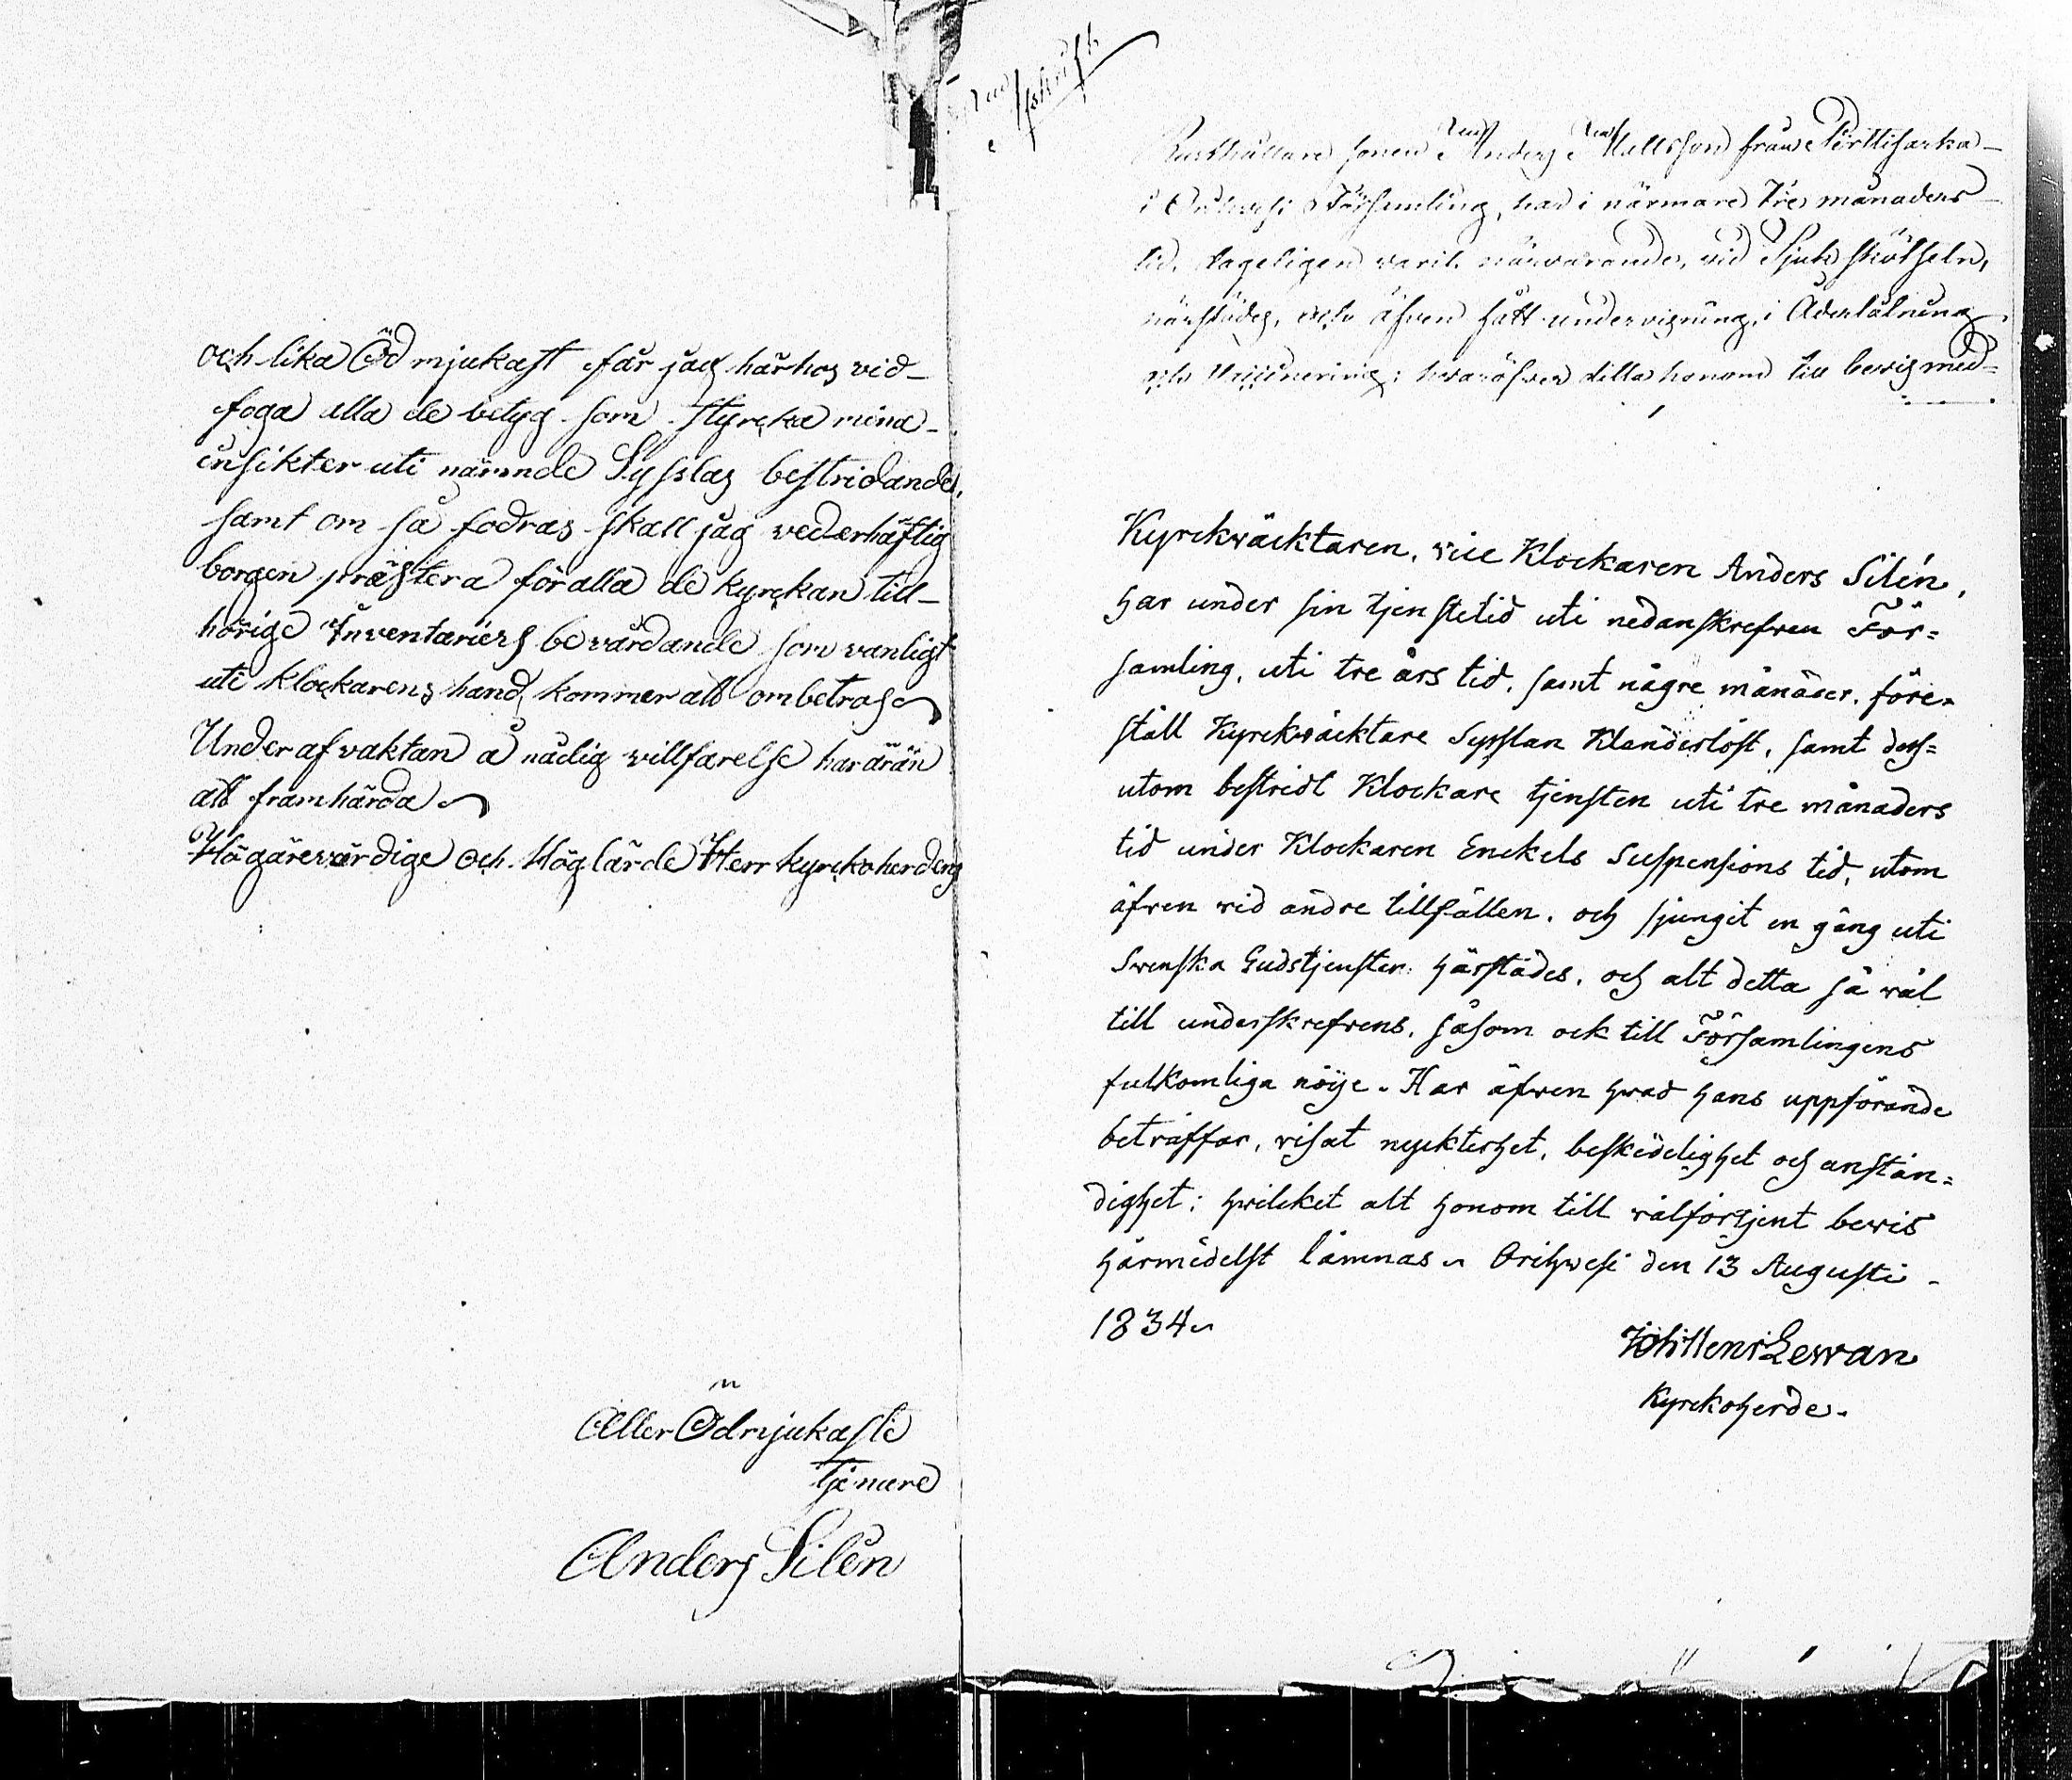 och lika Ödmjukast får jag härhos vid-
foga alla de betyg som styrcka mina
insikter uti nämnde Sysslas bestridande,
samt om så fodras skall jag vederhäftig
borgen præstera för alla de kyrckan till-
hörige Inventariers bevårdande som vanligt
uti klockarens hand kommer att ombetros
Under afvaktan å nådig villfarelse har äran
att framhärda
Högärevärdige och Höglärde Herr kyrckoherdens
Aller Ödmjukaste
tjenare
Anders Silén
Afskrift
Rusthållare sonen Anders Mattsson från Perttisarka
i Orihvesi Församling, har i närmare tre månaders
tid, dageligen varit närvarande, vid Sjuk skötseln,
härstädes, och äfven fått undervisning, i Åderlåtning
och Vaccinering; hvaröfver detta honom till bevis med-
Kyrckwäcktaren, vice Klockaren Anders Silén,
har under sin tjenstetid uti nedanskrefven För=
samling, uti tre års tid, samt någre månader, före=
ståll Kyrckwäcktare Sysslan Klanderlöst, samt dess=
utom bestridt Klockare tjensten uti tre månaders
tid under Klockaren Enckels Suspensions tid, utom
äfven vid andre tillfällen, och sjungit en gång uti
Svenska Gudstjensten härstädes, och alt detta så väl
till underskrefvens, såsom ock till Församlingens
fulkomliga nöije. Har äfven hvad hans uppförande
beträffar, visat nyckterhet, beskedelighet och anstän=
dighet; hvilcket alt honom till välförtjent bevis
härmedelst lämnas Orihwesi den 13 Augusti
1834
Lewan
Kyrckoherde.